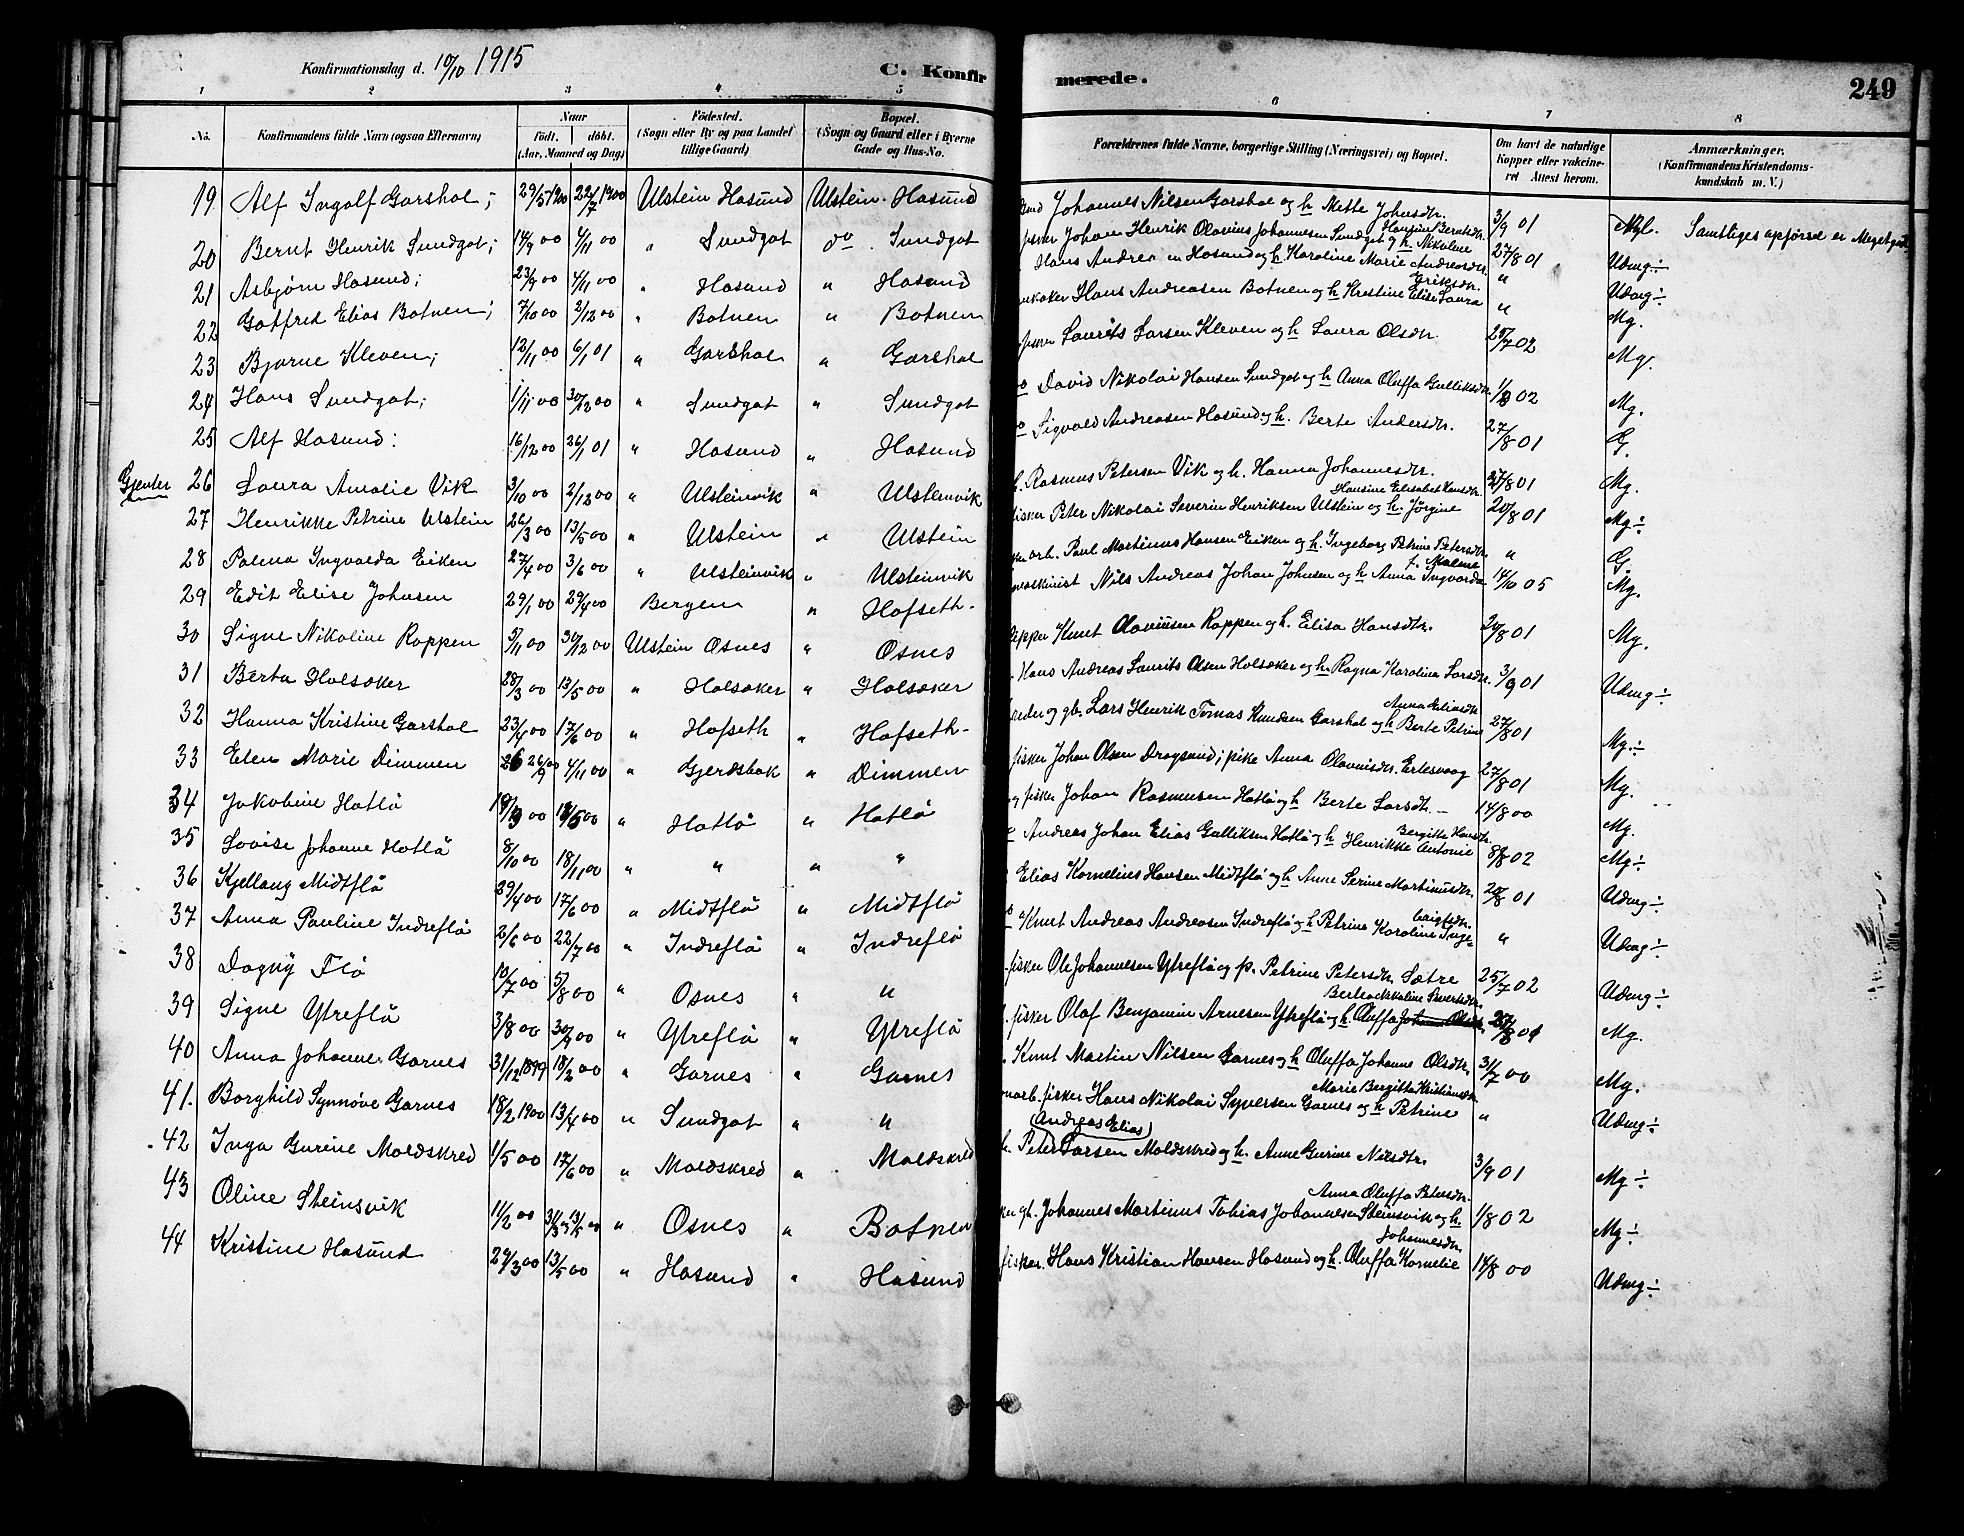 Konfirmationsdag d. 10/10 1915
C. Konfirmerede.
249
1 2 3 4 5 6 7 8
No. Konfirmandens fulde Navn (ogsaa Efternavn) Naar født. døbt. (Aar, Maaned og Dag) Fødested. (Sogn eller By og paa Landet tillige Gaard) Bopæl. (Sogn og Gaard eller i Byerne Gade og Hus-No. Forældrenes fulde Navne, borgerlige Stilling (Næringsvei) og Bopæl. Om havt de naturlige Kopper eller vakcineret Attest herom. Anmærkninger. (Konfirmandens Kristendomskundskab m. V.)
19 Alf Ingolf Garshol; 29/5 1900 22/7 1900 Ulstein Hasund Ulstein Hasund Johannes Nilsen Garshol og h. Mette Johnsdtr. 3/9 01 Mg. Samtliges opførsel er Meget god
20 Bernt Henrik Sundgot; 14/9 00 4/11 00 " Sundgot do Sundgot fisker Johan Henrik Olavius Johannesen Sundgot og h. Nikoline Hansine Berntsdtr. 27/8 01 Udmg ÷
21 Asbjørn Hasund; 23/9 00 4/11 00 " Hasund " Hasund Hans Andrea en Hasund og h. Karoline Marie Andreasdtr. " Udmg ÷
22 Gotfred Elias Botnen; 7/10 00 2/12 00 " Botnen " Botnen Hans Andreasen Botnen og h. Kristine Elise Laura Eriksdtr. " Mg.
23 Bjarne Kleven; 12/11 00 6/1 01 " Garshol " Garshol fisker Laurits Larsen Kleven og h. Laura Olsdtr. 29/7 02 Mg.
24 Hans Sundgot; 1/11 00 30/12 00 " Sundgot " Sundgot David Nikolai Hansen Sundgot og h. Anna Oluffa Gulliksdtr. 1/8 02 Mg.
25 Alf Hasund: 16/12 00 26/1 01 " Hasund " Hasund Sigvald Andreasen Hasund og h. Berte Andersdtr. 27/8 01 G.
Gjenter
26 Laura Amalie Vik 3/10 00 2/12 00 " Ulsteinvik " Ulsteinvik Rasmus Petersen Vik og h. Hanna Johannesdtr. 27/8 01 Mg.
27 Henrikke Petrine Ulstein 26/3 00 13/5 00 " Ulstein " Ulstein fisker Peter Nikolai Severin Henriksen Ulstein og h. Jørgine Hansine Elisabet Hansdtr. 20/8 01 Mg ÷
28 Palma Ingvalda Eiken 27/4 00 3/6 00 " Ulsteinvik " Ulsteinvik arb. Paul Martinus Hansen Eiken og h. Ingeborg Petrine Petersdtr. " G.
29 Edit Elise Johnsen 29/1 00 29/4 00 Bergen " Hofseth maskinist Nils Andreas Johan Johnsen og h. Anna Ingvarda f. Malme 14/10 05 Mg.
30 Signe Nikoline Roppen 5/11 00 30/12 00 Ulstein Osnes " Osnes Knut Olavusen Roppen og h. Elisa Hansdtr. 20/8 01 Mg.
31 Berta Holsøker 28/3 00 13/5 00 " Holsøker " Holsøker Hans Andreas Laurits Olsen Holsøker og h. Ragna Karolina Larsdtr. 3/9 01 Udmg ÷
32 Hanna Kristine Garshol 23/4 00 17/6 00 " Hofseth " Hofseth Lars Henrik Tomas Knudsen Garshol og h. Berte Petrine Anna Eliasdtr. 27/8 01 Mg ÷
33 Elen Marie Dimmen 26/9 00 4/11 00 " Gjerdsbak " Dimmen fisker Johan Olsen Dragsund; pike Anna Olavusdtr. Ertesvaag 27/8 01 Mg.
34 Jakobine Hatlø 19/3 00 00 " Hatlø " Hatlø fisker Johan Rasmussen Hatlø og h. Berte Larsdtr. 14/8 00 Mg.
35 Lovise Johanne Hatlø 8/10 00 18/11 00 " " " " Andreas Johan Elias Gulliksen Hatlø og h. Henrikke Antonie Bergitte Hansdtr. 8/8 02 Mg ÷
36 Kjellaug Midtflø 29/4 00 17/6 00 " Midtflø " Midtflø Elias Kornelius Hansen Midtflø og h. Anne Serine Martinusdtr. 20/8 01 Udmg ÷
37 Anna Pauline Indreflø 2/6 00 22/7 00 " Indreflø " Indreflø Knut Andreas Andreasen Indreflø og h. Petrine Karoline Ingebrigtsdtr. " Udmg ÷
38 Dagny Flø 10/7 00 5/8 00 " Osnes " " fisker Ole Johannesen Ytreflø og p. Petrine Petersdtr. Sætre 25/7 02 Udmg ÷
39 Signe Ytreflø 3/8 00 30/9 00 " Ytreflø " Ytreflø fisker Olaf Benjamin Arnesen Ytreflø og h. Oluffa Sivertsdtr. 27/8 01 Mg.
40 Anna Johanne Garnes 31/12 1899 18/2 00 " Garnes " Garnes Knut Martin Nilsen Garnes og h. Oluffa Johanne Olsdtr. 31/7 00 Mg.
41. Borghild Synnøve Garnes 18/2 1900 13/4 00 " Sundgot " " fisker Hans Nikolai Syversen Garnes og h. Petrine Marie Bergitta Kristiansdtr. " Udmg ÷
42 Inga Gurine Moldskred 1/5 00 17/6 00 " Moldskred " Moldskred (Andreas Elias) Peter Larsen Moldskred og h. Anne Gurine Nilsdtr. 3/9 01 Mg ÷
43 Oline Steinsvik 11/2 00 13/5 00 " Osnes " Botnen Johannes Martinus Tobias Johannesen Steinsvik og h. Anna Oluffa Petersdtr. 1/8 02 Mg ÷
44 Kristine Hasund 29/3 00 13/5 00 " Hasund " Hasund fisker Hans Kristian Hansen Hasund og h. Oluffa Kornelie Johannesdtr. 14/8 00 Udmg ÷